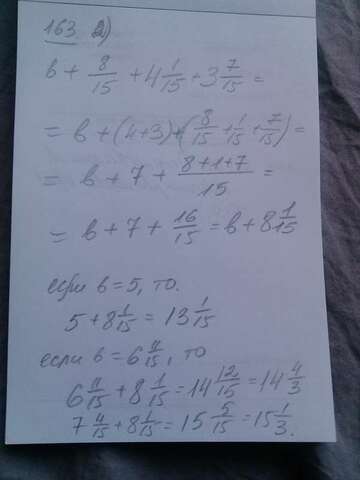 163 2)
в + 8/15 + 4 1/15 + 3 7/15 =
= в + (4+3) + (8/15 + 1/15 + 7/15) =
= в + 7 + 8+1+7/15 =
= в + 7 + 16/15 = в + 8 1/15
если в = 5, то.
5 + 8 1/15 = 13 1/15
если в = 6 11/15, то
6 11/15 + 8 1/15 = 14 12/15 = 14 4/3
7 4/15 + 8 1/15 = 15 5/15 = 15 1/3.